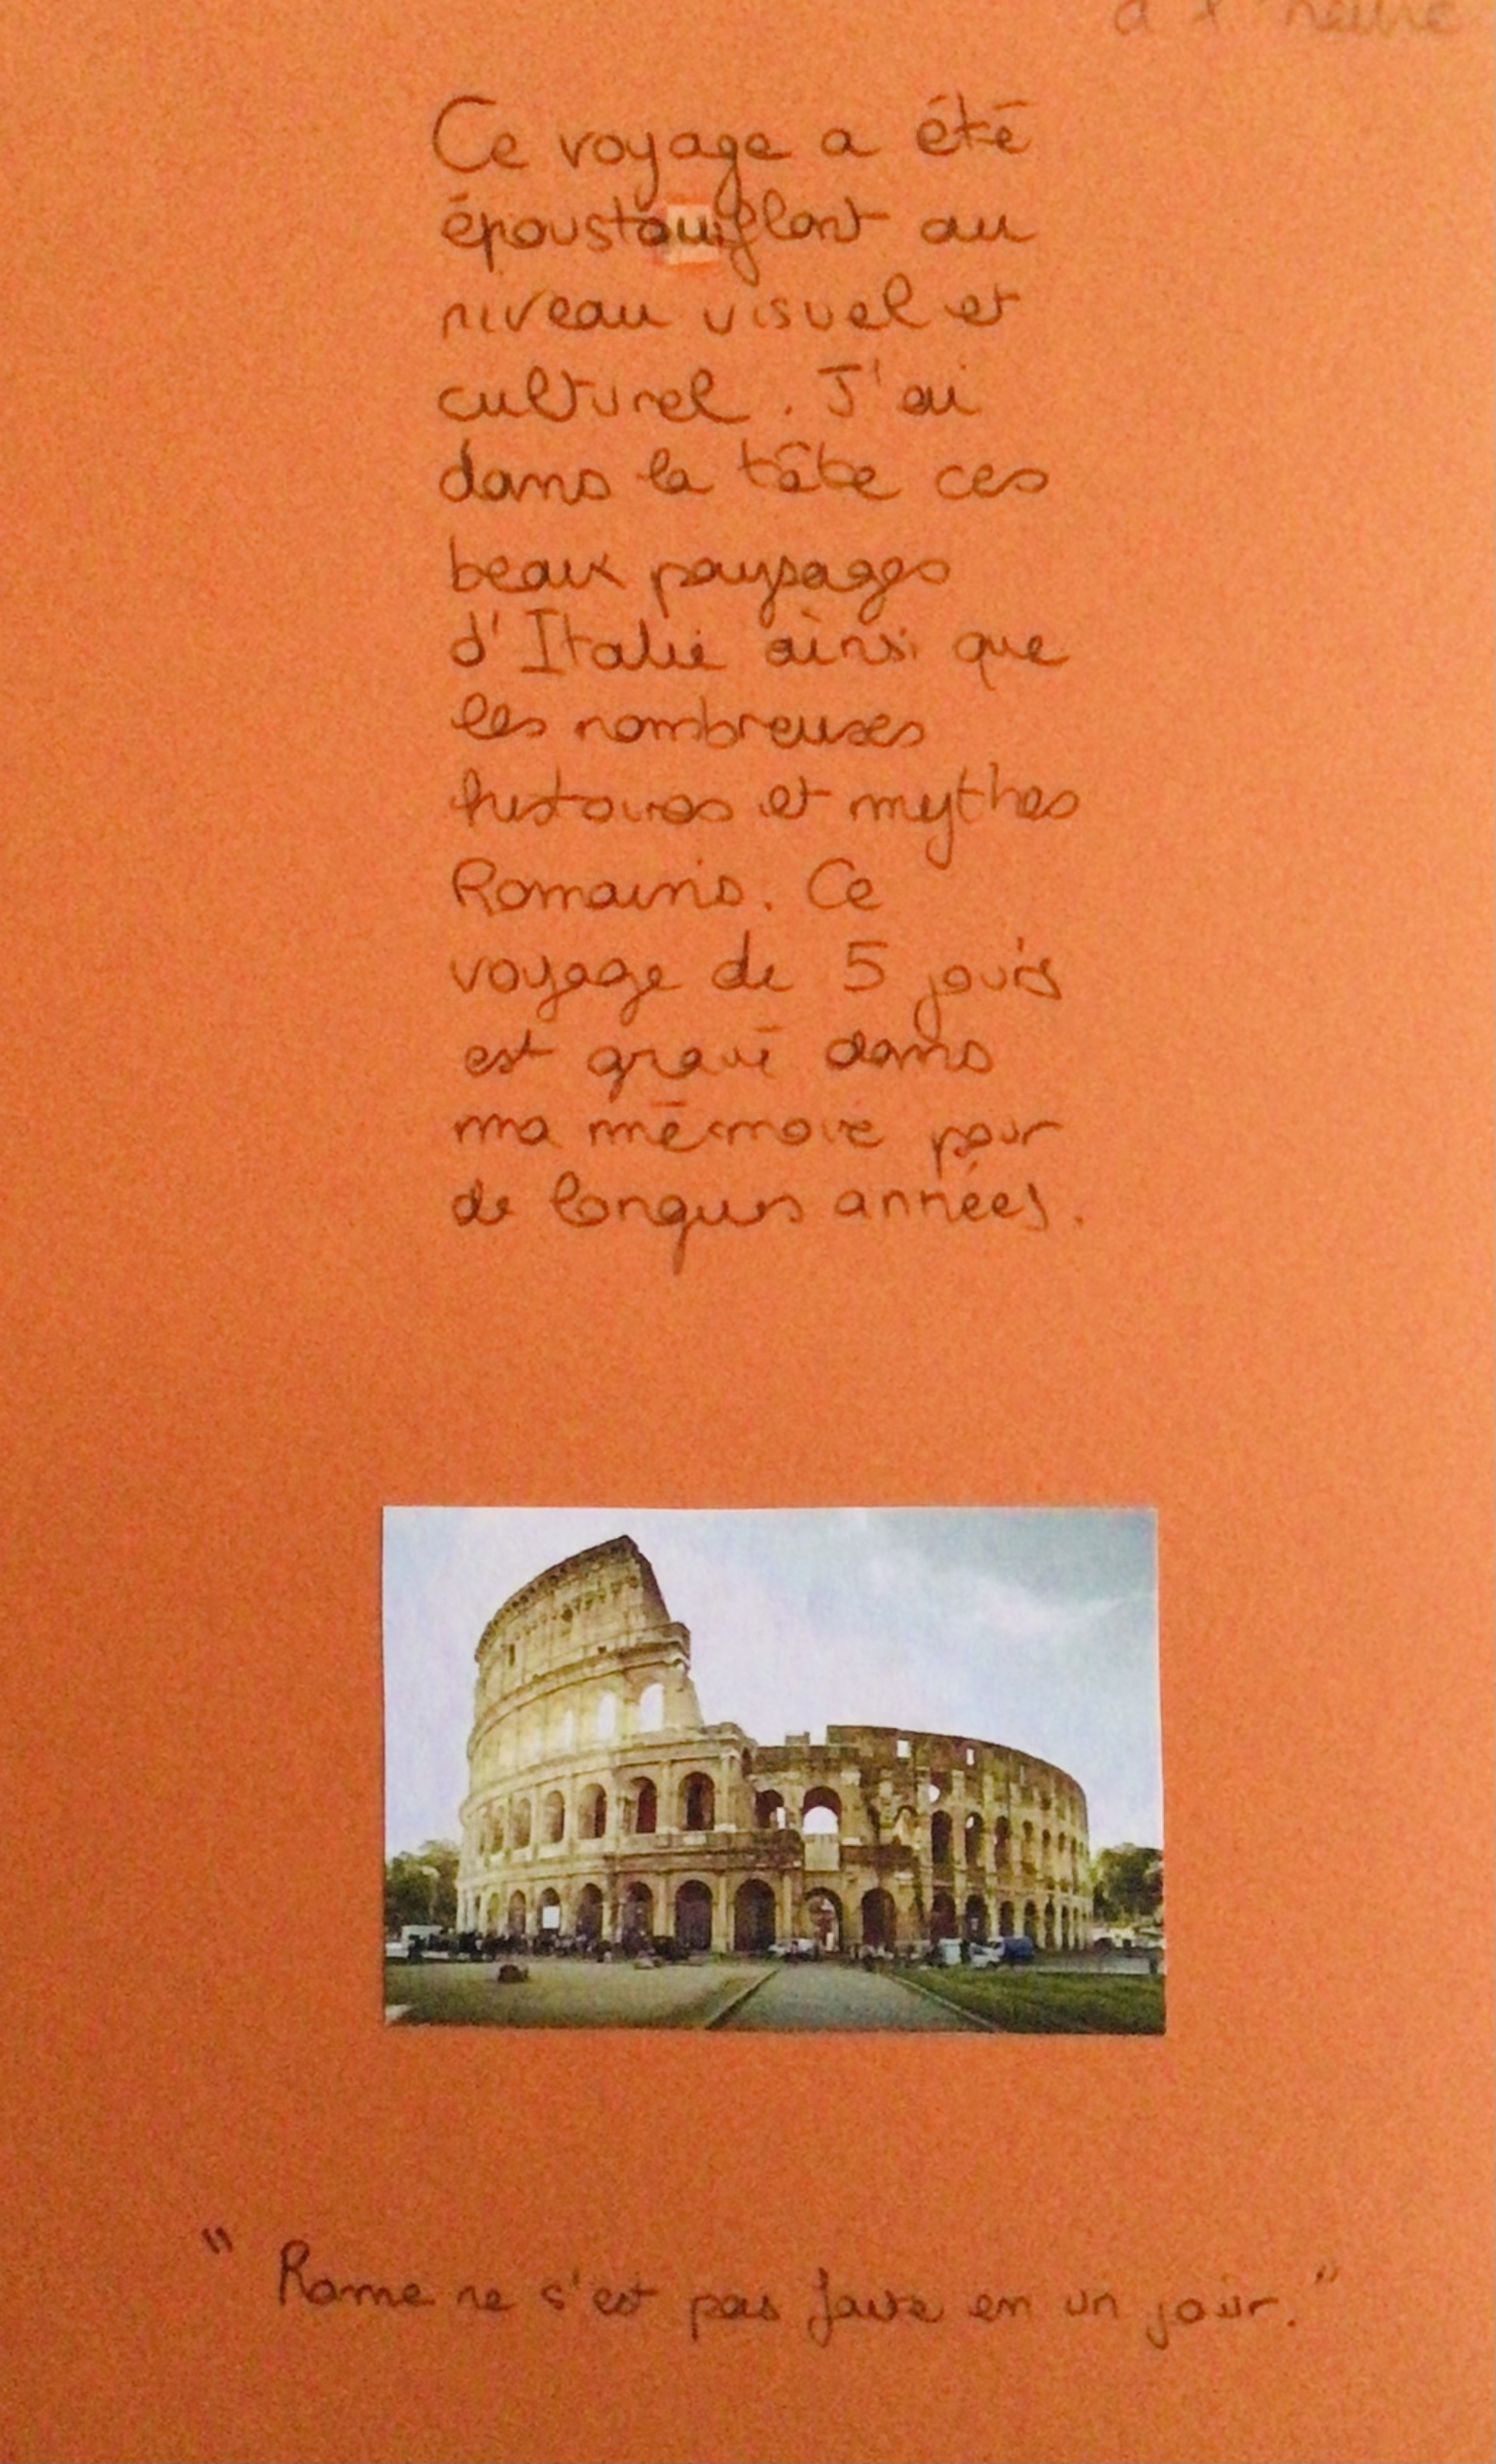 à l'heure
Ce voyage a été
époustouflant au
niveau visuel et
culturel. J'ai
dans la tête ces
beaux paysages
d'Italie ainsi que
les nombreuses
histoires et mythes
Romains. Ce
voyage de 5 jours
est gravé dans
ma mémoire pour
de longues années.
" Rome ne s'est pas faite en un jour."